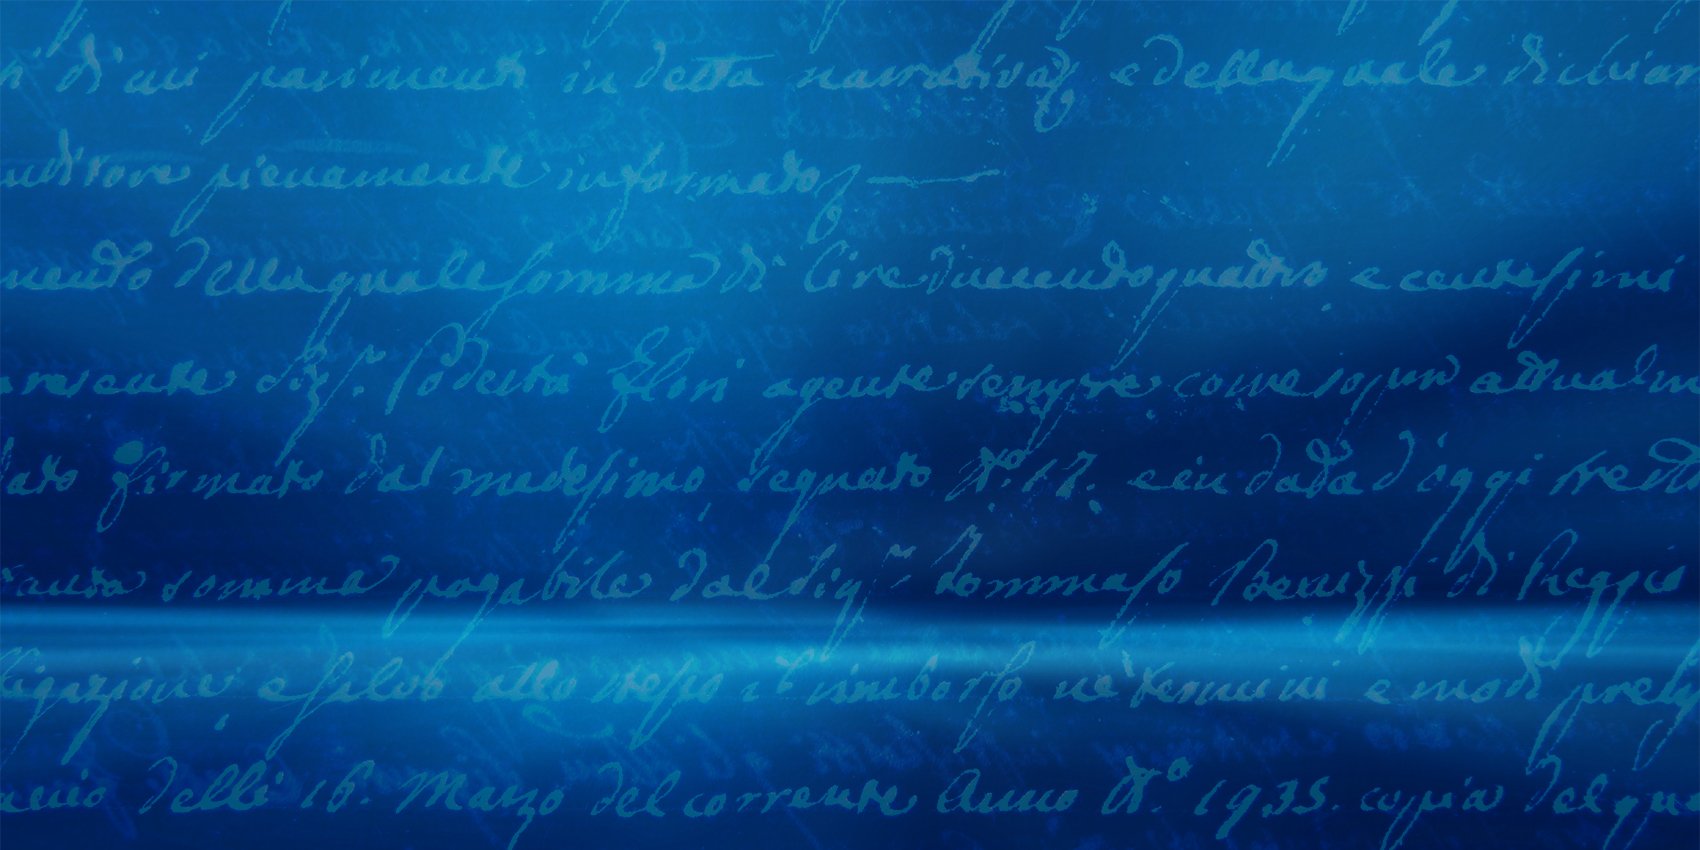 di cui parimenti in detta narrativa, e della quale dichiar
uditore pienamente informato, —
mento della quale somma di lire duecentoquattro e centesimi
presente Sig.r Podestà Flori agente sempre come sopra attualm
dato firmato dal medesimo segnato N.° 17. e in data d'oggi
somma pagabile dal Sig.r Tommaso di Reggio
ligazione, e salvo allo stesso il rimborso ne' termini e modi
delli 16. Marzo del corrente Anno N.° 1935. copia del qua